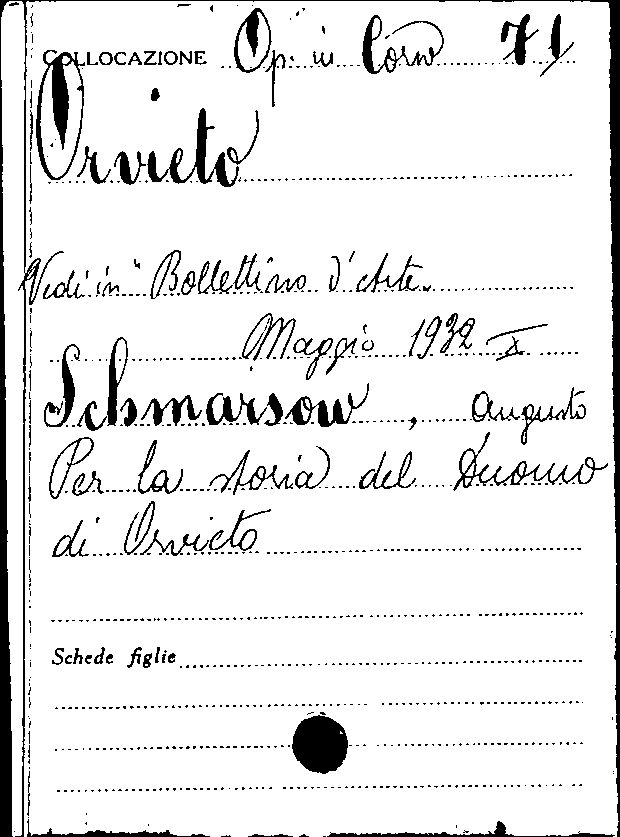 COLLOCAZIONE Op. in Corso 71
Orvieto
Vedi in "Bollettino d'Arte.
Maggio 1932 X
Schmarsow, Augusto
Per la storia del Duomo
di Orvieto
Schede figlie